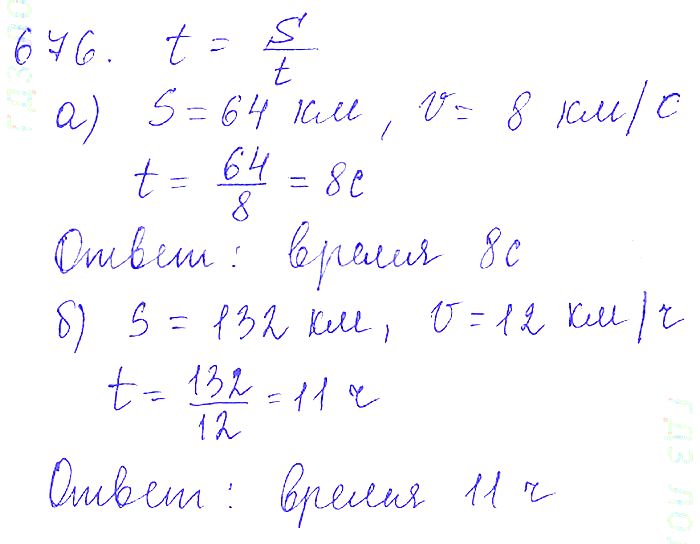 676. t = S/t
а) S = 64 км, v = 8 км/с
t = 64/8 = 8с
Ответ: время 8с
б) S = 132 км, v = 12 км/ч
t = 132/12 = 11 ч
Ответ: время 11 ч